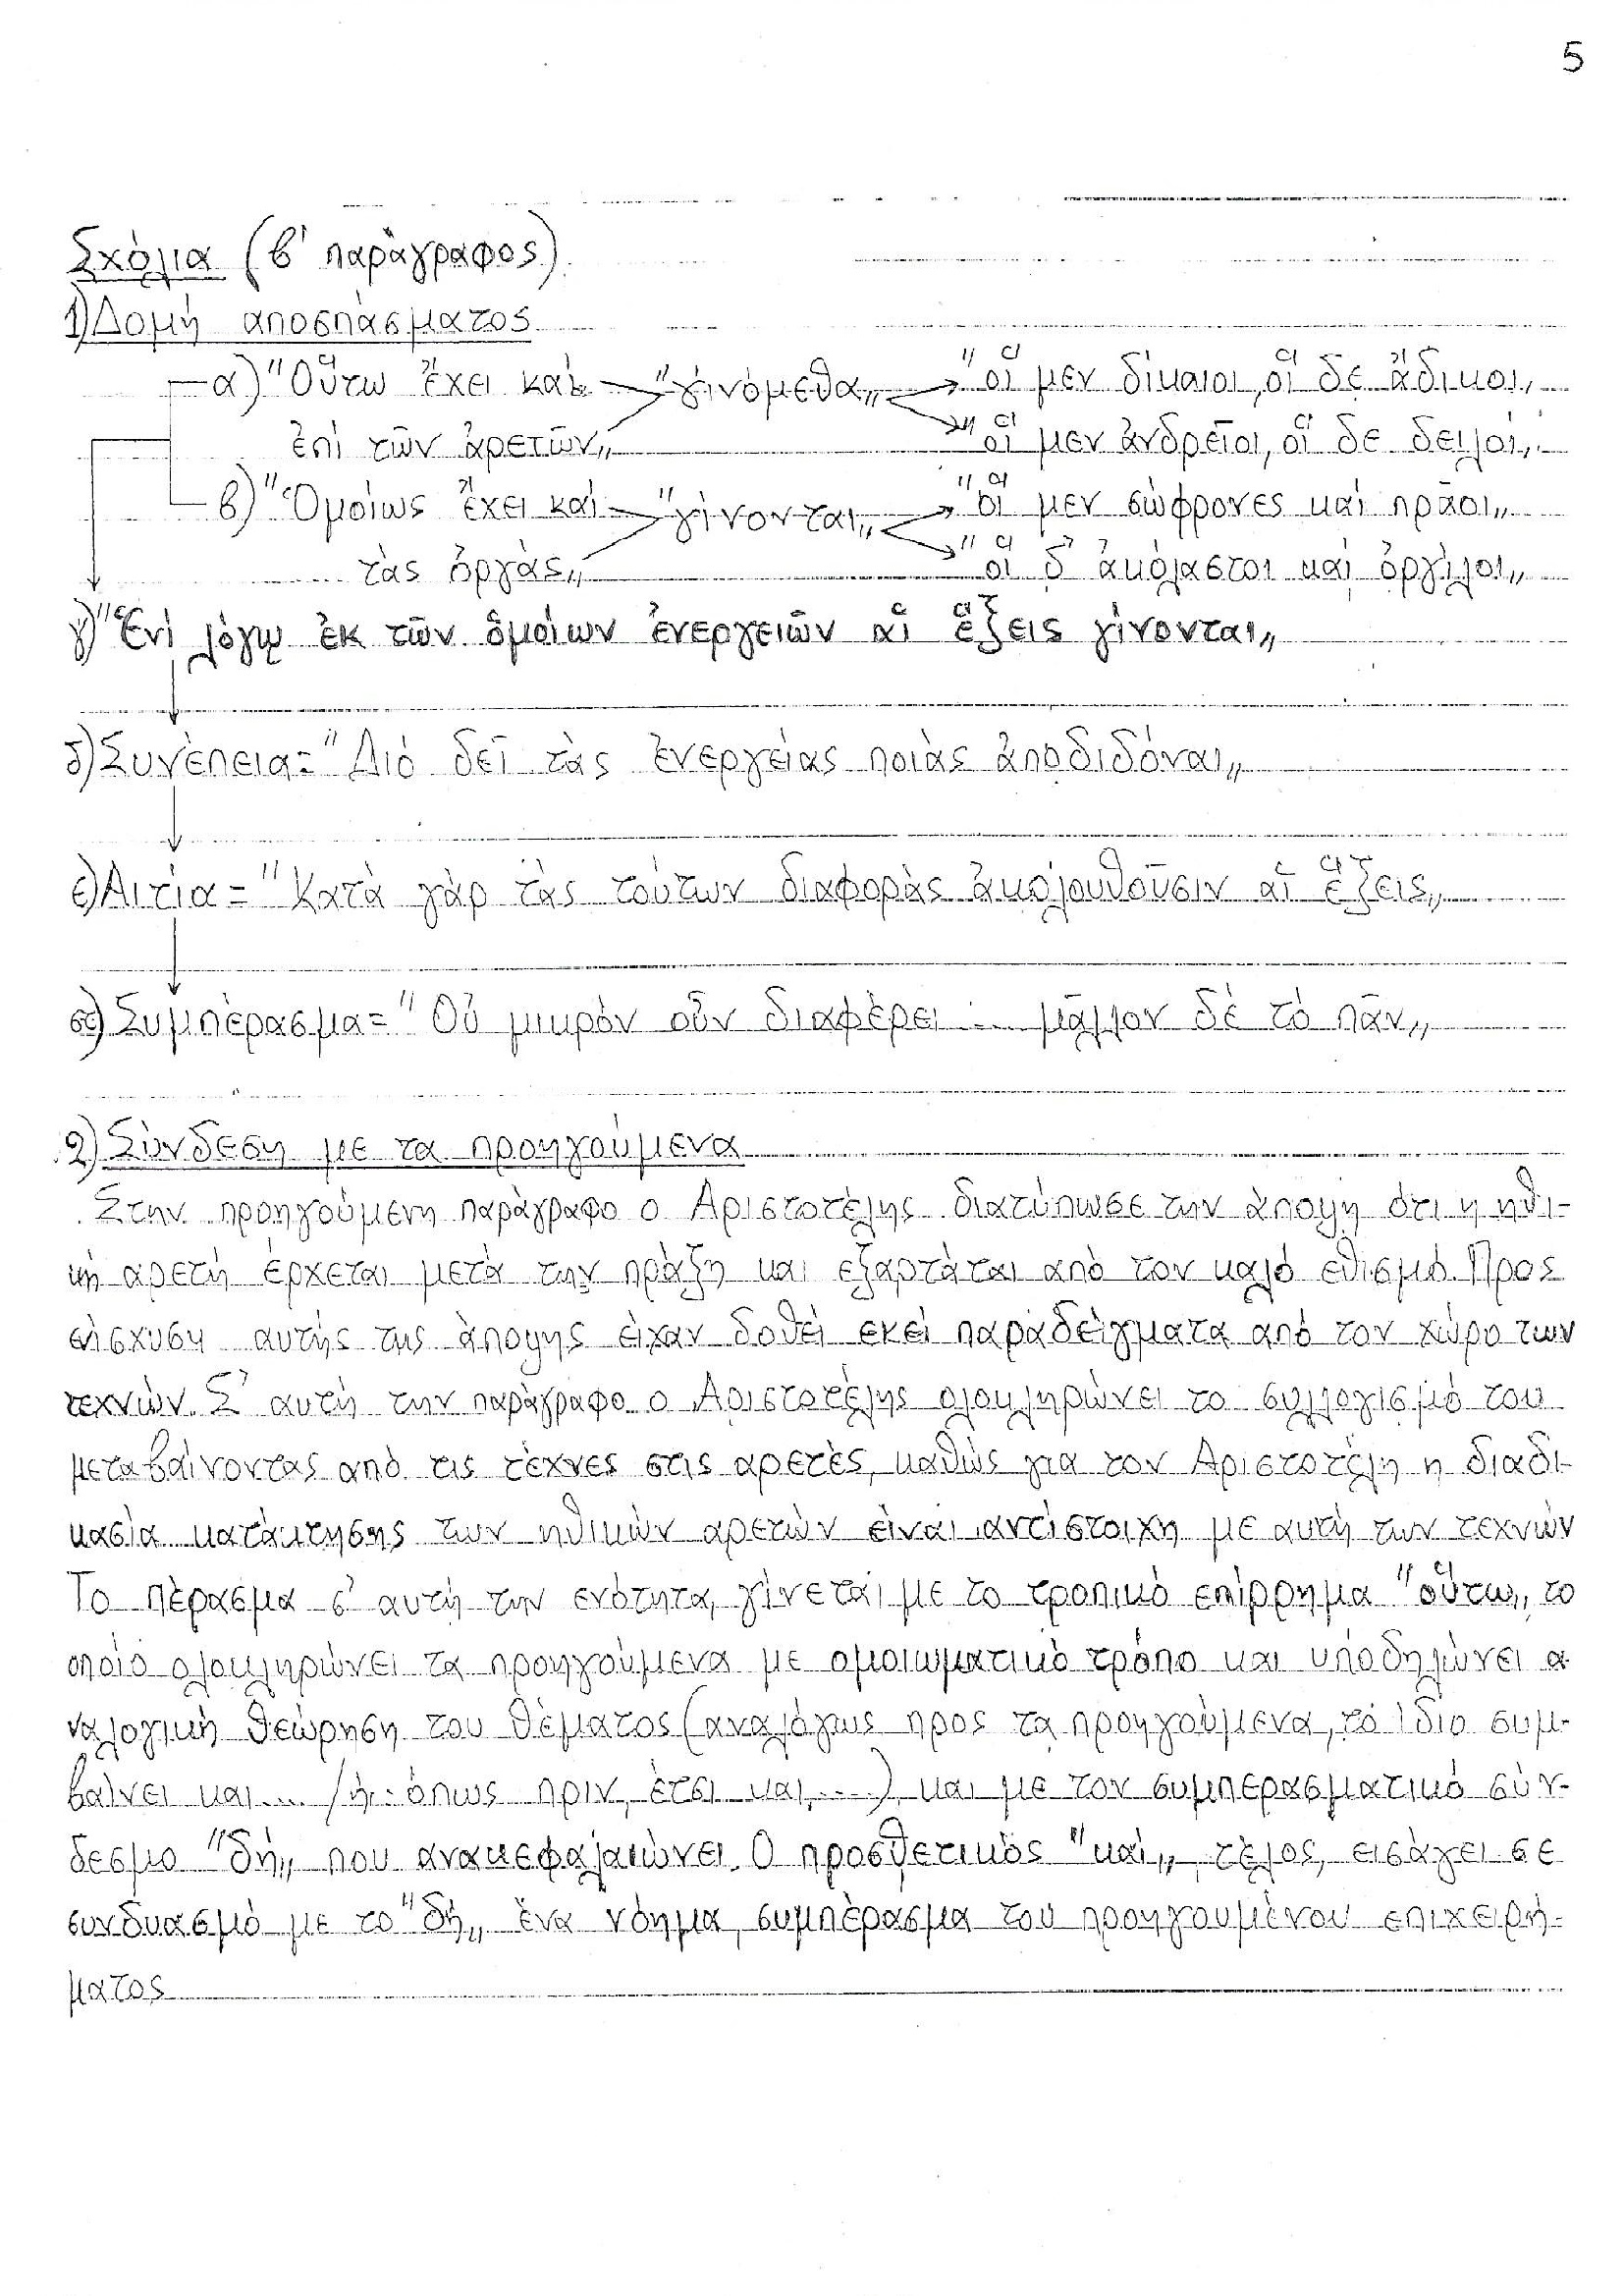 5
Σχόλια (β' παράγραφος)
1) Δομή αποσπάσματος
α) "Οὕτω ἔχει καὶ "γινόμεθα„ "οἵ μεν δίκαιοι, οἵ δε ἄδικοι„
ἐπὶ τῶν ἀρετῶν„ "οἵ μεν ἀνδρεῖοι, οἵ δε δειλοί„
β) "Ὁμοίως ἔχει καὶ "γίνονται„ "οἵ μεν σώφρονες καὶ πρᾶοι„
τὰς ὀργάς„ "οἵ δ' ἀκόλαστοι καὶ ὀργίλοι„
γ) "Ἑνὶ λόγῳ ἐκ τῶν ὁμοίων ἐνεργειῶν αἱ ἕξεις γίνονται„
δ) Συνέπεια = "Διό δεῖ τὰς ἐνεργείας ποιὰς ἀποδιδόναι„
ε) Αιτία = "Κατὰ γὰρ τὰς τούτων διαφορὰς ἀκολουθοῦσιν αἱ ἕξεις„
στ) Συμπέρασμα = "Οὐ μικρὸν οὖν διαφέρει ... μᾶλλον δὲ τὸ πᾶν„
2) Σύνδεση με τα προηγούμενα
Στην προηγούμενη παράγραφο ο Αριστοτέλης διατύπωσε την άποψη ότι η ηθι-
κή αρετή έρχεται μετά την πράξη και εξαρτάται από τον καλό εθισμό. Προς
ενίσχυση αυτής της άποψης είχαν δοθεί εκεί παραδείγματα από τον χώρο των
τεχνών. Σ' αυτή την παράγραφο ο Αριστοτέλης ολοκληρώνει το συλλογισμό του
μεταβαίνοντας από τις τέχνες στις αρετές, καθώς για τον Αριστοτέλη η διαδι-
κασία κατάκτησης των ηθικών αρετών είναι αντίστοιχη με αυτή των τεχνών
Το πέρασμα σ' αυτή την ενότητα, γίνεται με το τροπικό επίρρημα "οὕτω„, το
οποίο ολοκληρώνει τα προηγούμενα με ομοιωματικό τρόπο και υποδηλώνει α-
ναλογική θεώρηση του θέματος (αναλόγως προς τα προηγούμενα, το ίδιο συμ-
βαίνει και... / ή: όπως πριν, έτσι και....), και με τον συμπερασματικό σύν-
δεσμο "δή„ που ανακεφαλαιώνει. Ο προσθετικός "καί„, τέλος, εισάγει σε
συνδυασμό με το "δή„ ένα νόημα, συμπέρασμα του προηγουμένου επιχειρή-
ματος